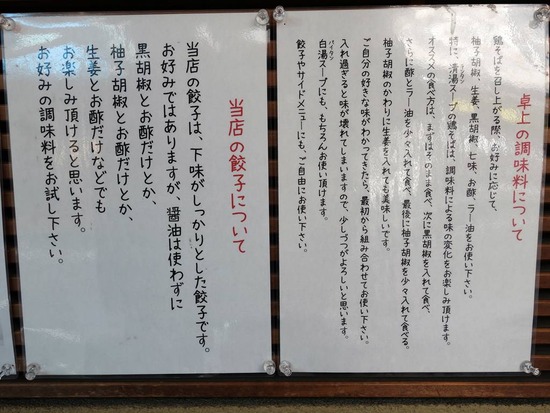 卓上の調味料について
鶏そばを召し上がる際、お好みに応じて、
柚子胡椒、生姜、黒胡椒、七味、お酢、ラー油をお使い下さい。
特に、清湯スープの鶏そばは、調味料による味の変化をお楽しみ頂けます。
オススメの食べ方は、まずはそのまま食べ、次に黒胡椒を入れて食べ、
さらに酢とラー油を少々入れて食べ、最後に柚子胡椒を少々入れて食べる。
柚子胡椒のかわりに生姜を入れても美味しいです。
ご自分の好きな味がわかってきたら、最初から組み合わせてお使い下さい。
入れ過ぎると味が壊れてしまいますので、少しづつがよろしいと思います。
パイタン
白湯スープにも、もちろんお使い頂けます。
餃子やサイドメニューにも、ご自由にお使い下さい。
当店の餃子について
当店の餃子は、下味がしっかりとした餃子です。
お好みではありますが、醤油は使わずに
黒胡椒とお酢だけとか、
柚子胡椒とお酢だけとか、
生姜とお酢だけなどでも
お楽しみ頂けると思います。
お好みの調味料をお試し下さい。